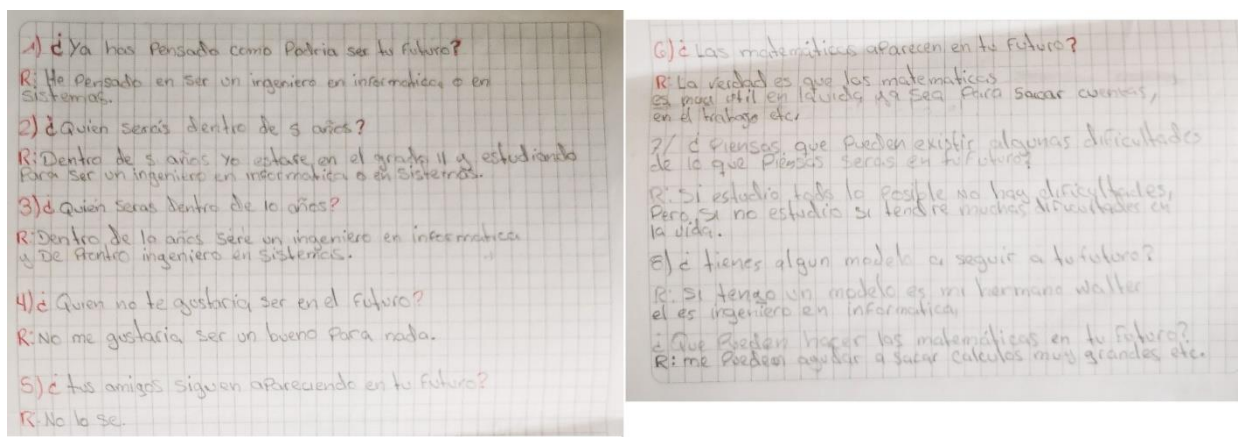 1) ¿Ya has Pensado como Podria ser tu Futuro?
R: He Pensado en ser un ingeniero en informatica o en
sistemas.
2) ¿Quien serás dentro de 5 años?
R: Dentro de 5 años yo estare, en el grado 11 y estudiando
Para ser un ingeniero en informatica o en sistemas.
3) ¿Quien seras Dentro de 10 años?
R: Dentro de 10 años sere un ingeniero en informatica
y De ingeniero en sistemas.
4) ¿Quien no te gustaria ser en el Futuro?
R: No me gustaria ser un bueno Para nada.
5) ¿tus amigos siguen apareciendo en tu Futuro?
R: No lo se.
6) ¿Las matemáticas aparecen en tu Futuro?
R: La verdad es que las matematicas
es muy util en la vida ya sea Para sacar cuentas,
en el trabajo etc,
7) ¿Piensas que Pueden existir algunas dificultades
de lo que Piensas seras en tu Futuro?
R: Si estudio todo lo Posible no hay dificultades,
Pero, si no estudio si tendre muchas dificultades en
la vida.
8) ¿tienes algun modelo a seguir a tu futuro?
R: Si tengo un modelo es mi hermano Walter
el es ingeniero en informatica,
¿Que Pueden hacer las matemáticas en tu Futuro?
R: me Pueden ayudar a sacar calculos muy grandes etc.